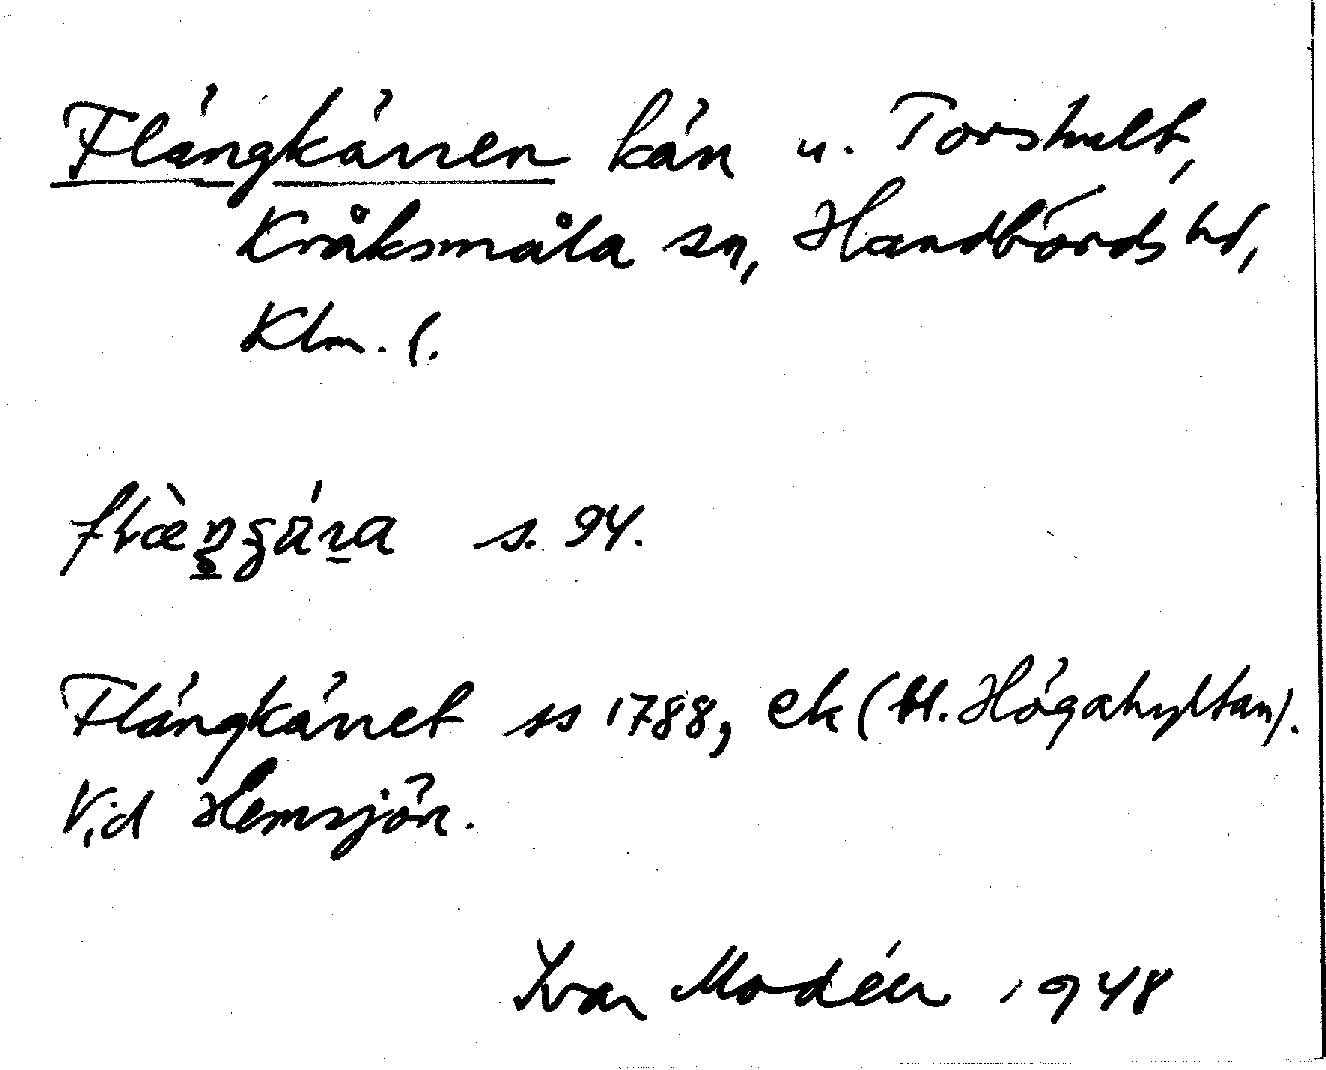 Flängkärren kärr u. Torshult,
Kråksmåla sn, Handbörds hd,
Klm. l.
s. 94.
Flängkärret ss 1788, ek (bl. Högahyltan).
Vid Hemsjön.
Ivar Modéer 1948